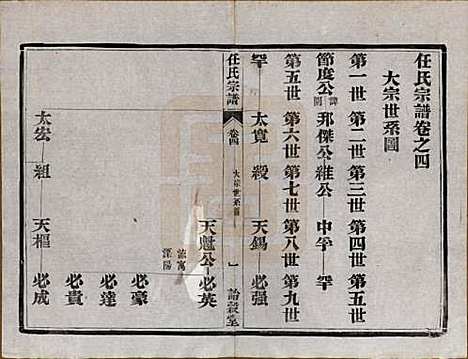 任氏宗譜卷之四
大宗世系圖
第一世 第二世 第三世 第四世 第五世
節度公 諱圜 邢傑公 維公 中孚 罕
第五世 第六世 第七世 第八世 第九世
罕 太寬 毅 天錫 必强
任氏宗譜 卷四 大宗世系圖 一
天魁公 必英
流寓溧陽
必豪
必達
必貴
太宏 組 天樞 必成